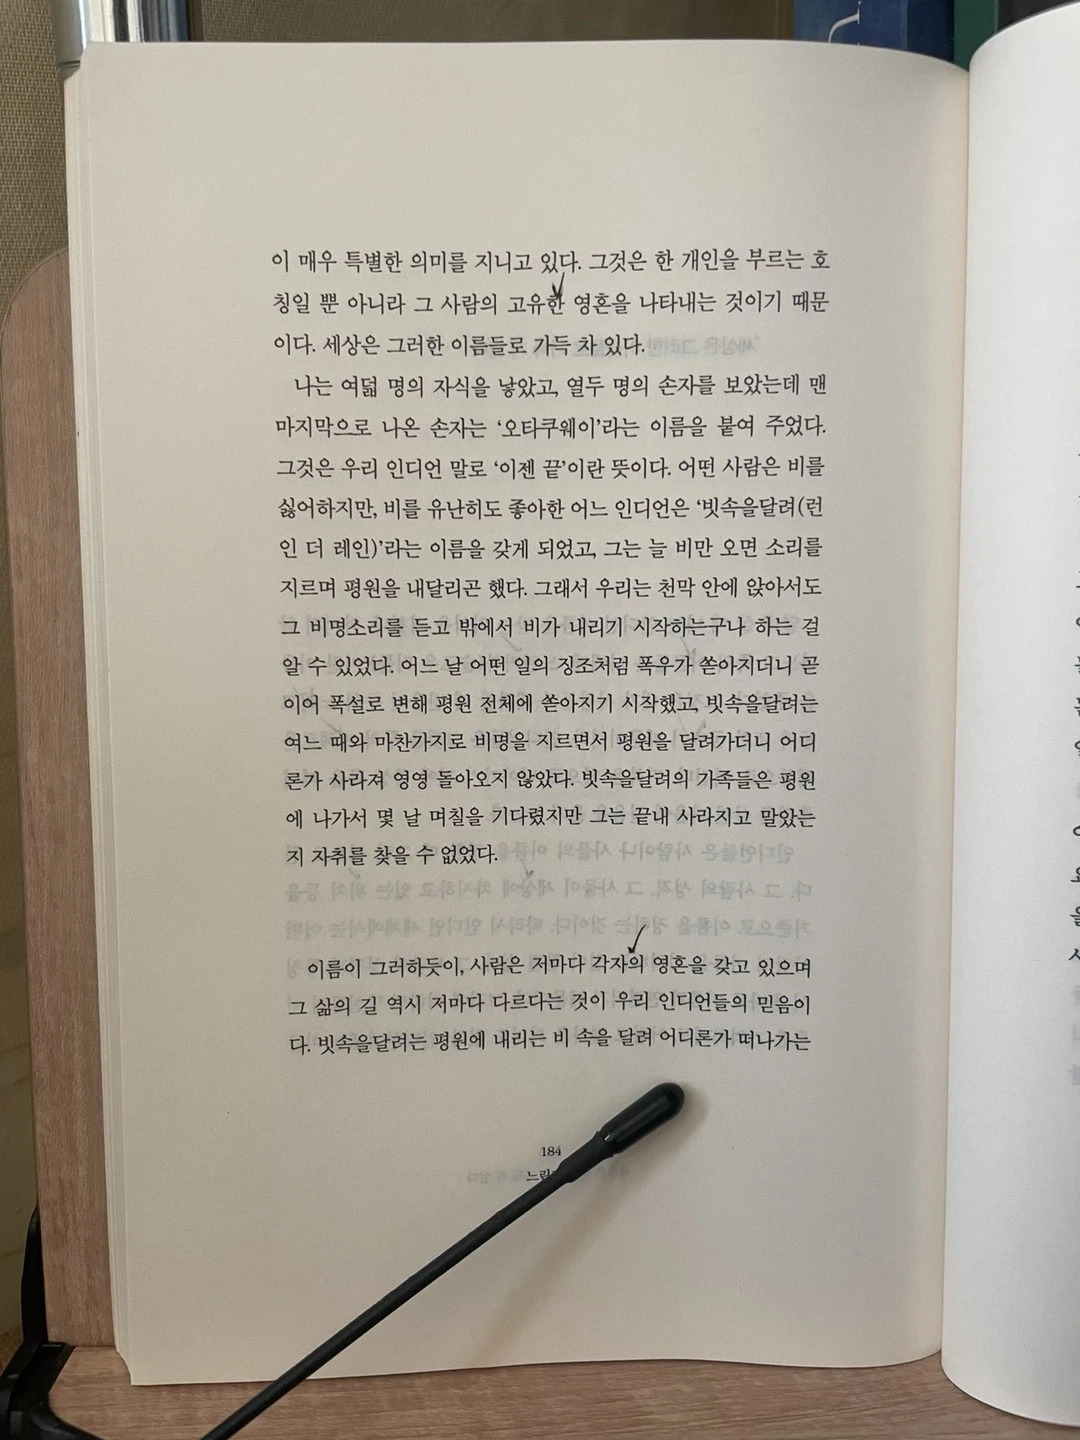 이 매우 특별한 의미를 지니고 있다. 그것은 한 개인을 부르는 호
칭일 뿐 아니라 그 사람의 고유한 영혼을 나타내는 것이기 때문
이다. 세상은 그러한 이름들로 가득 차 있다.
나는 여덟 명의 자식을 낳았고, 열두 명의 손자를 보았는데 맨
마지막으로 나온 손자는 ‘오타쿠웨이’라는 이름을 붙여 주었다.
그것은 우리 인디언 말로 ‘이젠 끝’이란 뜻이다. 어떤 사람은 비를
싫어하지만, 비를 유난히도 좋아한 어느 인디언은 ‘빗속을달려(런
인 더 레인)’라는 이름을 갖게 되었고, 그는 늘 비만 오면 소리를
지르며 평원을 내달리곤 했다. 그래서 우리는 천막 안에 앉아서도
그 비명소리를 듣고 밖에서 비가 내리기 시작하는구나 하는 걸
알 수 있었다. 어느 날 어떤 일의 징조처럼 폭우가 쏟아지더니 곧
이어 폭설로 변해 평원 전체에 쏟아지기 시작했고, 빗속을달려는
여느 때와 마찬가지로 비명을 지르면서 평원을 달려가더니 어디
론가 사라져 영영 돌아오지 않았다. 빗속을달려의 가족들은 평원
에 나가서 몇 날 며칠을 기다렸지만 그는 끝내 사라지고 말았는
지 자취를 찾을 수 없었다.
이름이 그러하듯이, 사람은 저마다 각자의 영혼을 갖고 있으며
그 삶의 길 역시 저마다 다르다는 것이 우리 인디언들의 믿음이
다. 빗속을달려는 평원에 내리는 비 속을 달려 어디론가 떠나가는
184